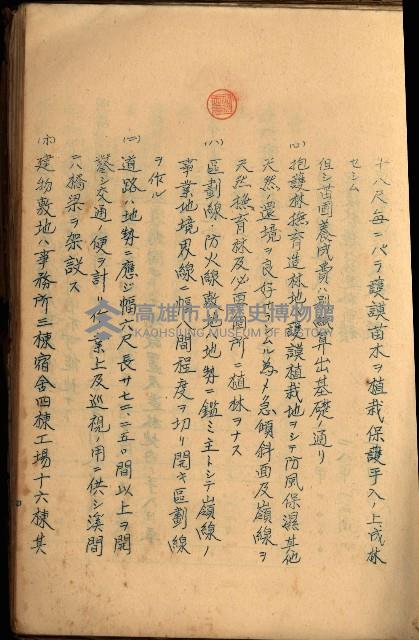 十八尺每ニパラ護謨苗木ヲ植栽保護手入ノ上成林
セシム
但シ苗圃養成費ハ別途算出基礎ノ通リ
(ロ) 抱護林撫育造林地ハ護謨植栽地ヲシテ防風保濕其他
天然ノ還境ヲ良好セシムル為メ急傾斜面及嶺線ヲ
天然撫育林及必要個所ニ植林ヲナス
(ハ) 區劃線、防火線敷地ハ地勢ニ鑑ミ主トシテ嶺線ノ
事業地境界線ニ幅 間程度ヲ切リ開キ區劃線
ヲ作ル
(ニ) 道路ハ地勢ニ應ジ幅六尺長サ七二、二五〇間以上ヲ開
鑿シ交通ノ便ヲ計リ作業上及巡視ノ用ニ供シ溪間
ニハ橋梁ヲ架設ス
(ホ) 建物敷地ハ事務所三棟宿舍四棟工場十六棟其
高雄市立歷史博物館
KAOHSIUNG MUSEUM OF HISTORY